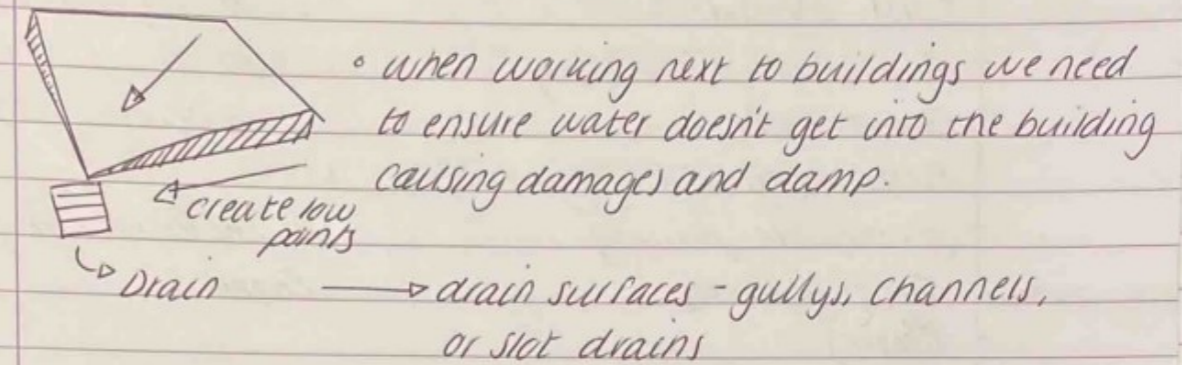 ◦ when working next to buildings we need
to ensure water doesn't get into the building
causing damages and damp.
create low
points
Drain → drain surfaces - gullys, channels,
or slot drains